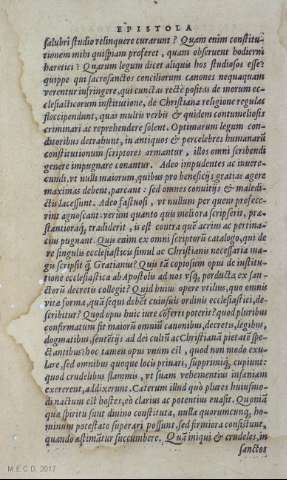 EPISTOLA
salubri studio relinquere curarunt? Quam enim constitu-
tionem mihi quispiam proferet, quam obseruent hodierni
hæretici? Quarum legum dicet aliquis hos studiosos esse?
quippe qui sacrosanctos conciliorum canones nequaquam
verentur infringere, qui cunctas recte positas de morum ec-
clesiasticorum institutione, de Christiana religione regulas
floccipendunt, quas multis verbis & quidem contumeliosis
criminari ac reprehendere solent. Optimarum legum con-
ditoribus detrahunt, in antiquos & percelebres humanarũ
constitutionum scriptores armantur, illos omni scribendi
genere impugnare conantur. Adeo impudentes ac inuere-
cundi, vt nulli maiorum, quibus pro beneficijs gratias agere
maximas debent, parcant: sed omnes conuitijs & maledi-
ctis lacessunt. Adeo fastuosi, vt nullum per quem profece-
rint agnoscant: verùm quanto quis meliora scripserit, præ-
stantioraq́; tradiderit, is est contra quẽ acrius ac pertina-
cius pugnant. Quis enim ex omni scriptorũ catalogo, qui de
re singulis ecclesiasticis simul ac Christianis necessaria ma-
gis scripsit q̃ Gratianus? Quis tã copiosum opus de institu-
tione ecclesiastica ab Apostolis ad nos vsq́; perducta ex san-
ctorũ decretis collegit? Quid huius opere vtilius, quo omnis
vitæ forma, quã sequi debet cuiusuis ordinis ecclesiastici, de-
scribitur? Quod opus huic iure cõferri poterit? quod pluribus
confirmatum sit maiorũ omniũ canonibus, decretis, legibus,
dogmatibus, sentẽtijs ad dei cultũ ac Christianã pietatẽ spe-
ctantibus: hoc tamen opus vnum est, quod non modo exu-
lare, sed omnibus quoque bonis priuari, supprimiq́; cupiunt:
quod crudelibus flammis, vt suam vehementius insaniam
exererent, addixerunt. Cæterum illud quò plures huiusmo-
di nactum est hostes, eò clarius ac potentius euasit. Quoniã
quæ spiritu sunt diuino constituta, nulla quorumcunq́; ho-
minum potestate superari possunt, sed firmiora consistunt,
quando æstimãtur succumbere. Quã iniqui & crudeles, in
sanctos
M.E.C.D. 2017